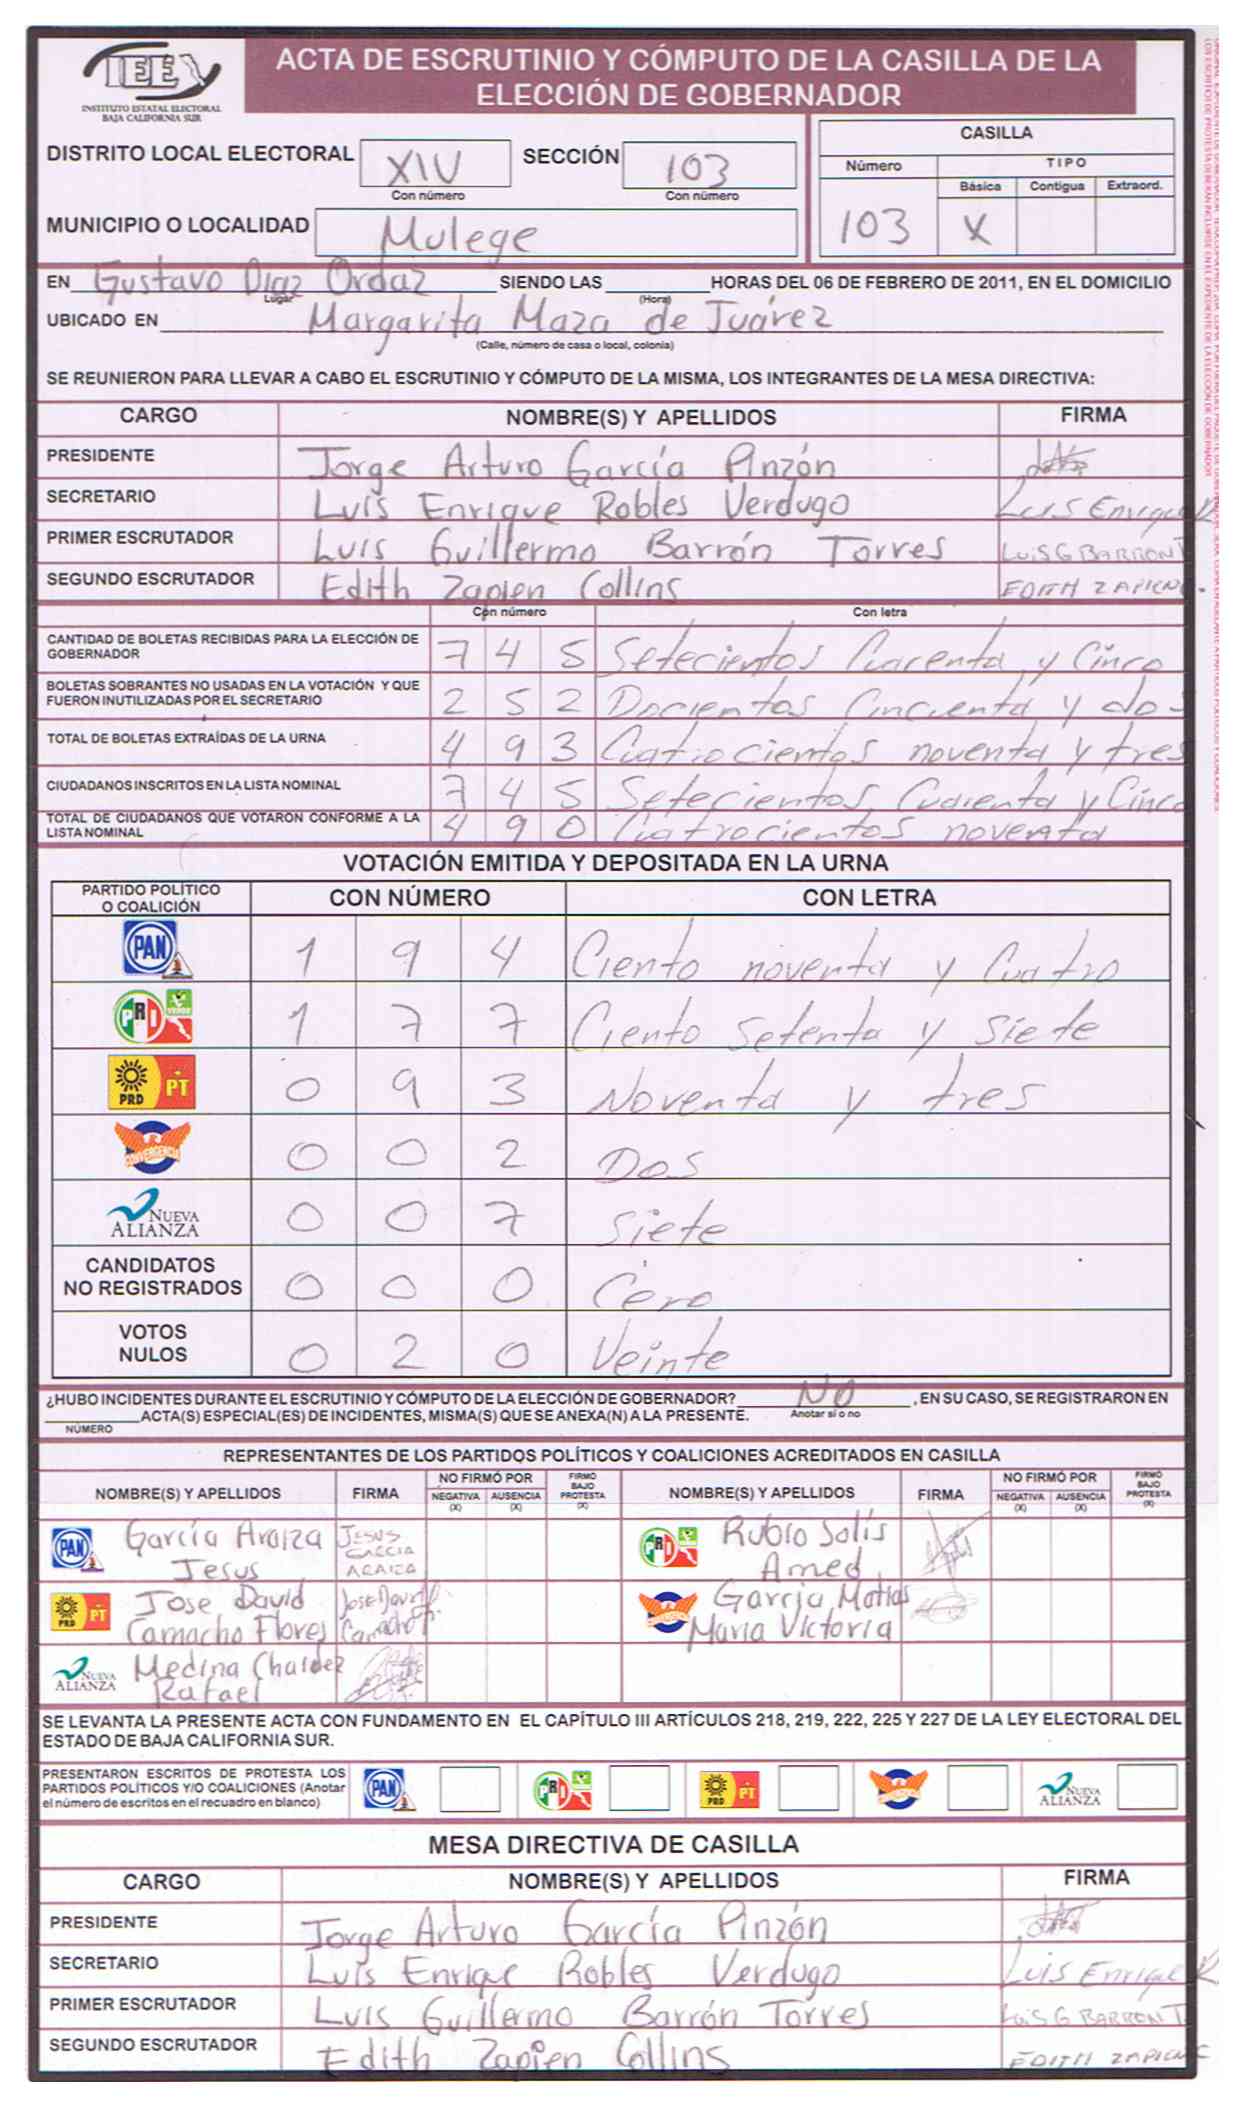 IEE
INSTITUTO ESTATAL ELECTORAL
BAJA CALIFORNIA SUR
ACTA DE ESCRUTINIO Y CÓMPUTO DE LA CASILLA DE LA
ELECCIÓN DE GOBERNADOR
DISTRITO LOCAL ELECTORAL XIV SECCIÓN 103
Con número Con número
MUNICIPIO O LOCALIDAD Mulege
CASILLA
Número TIPO
Básica Contigua Extraord.
103 X
EN Gustavo Diaz Ordaz SIENDO LAS HORAS DEL 06 DE FEBRERO DE 2011, EN EL DOMICILIO
Lugar (Hora)
UBICADO EN Margarita Maza de Juárez
(Calle, número de casa o local, colonia)
SE REUNIERON PARA LLEVAR A CABO EL ESCRUTINIO Y CÓMPUTO DE LA MISMA, LOS INTEGRANTES DE LA MESA DIRECTIVA:
CARGO NOMBRE(S) Y APELLIDOS FIRMA
PRESIDENTE Jorge Arturo García Pinzón
SECRETARIO Luís Enrique Robles Verdugo Luis Enrique R
PRIMER ESCRUTADOR Luis Guillermo Barrón Torres LUIS G BARRON T
SEGUNDO ESCRUTADOR Edith Zapien Collins EDITH ZAPIEN C
Con número Con letra
CANTIDAD DE BOLETAS RECIBIDAS PARA LA ELECCIÓN DE
GOBERNADOR 7 4 5 Setecientos Cuarenta y Cinco
BOLETAS SOBRANTES NO USADAS EN LA VOTACIÓN Y QUE
FUERON INUTILIZADAS POR EL SECRETARIO 2 5 2 Docientos Cincuenta y dos
TOTAL DE BOLETAS EXTRAÍDAS DE LA URNA 4 9 3 Cuatrocientos noventa y tres
CIUDADANOS INSCRITOS EN LA LISTA NOMINAL 7 4 5 Setecientos Cuarenta y Cinco
TOTAL DE CIUDADANOS QUE VOTARON CONFORME A LA
LISTA NOMINAL 4 9 0 Cuatrocientos noventa
VOTACIÓN EMITIDA Y DEPOSITADA EN LA URNA
PARTIDO POLÍTICO
O COALICIÓN CON NÚMERO CON LETRA
PAN 1 9 4 Ciento noventa y Cuatro
PRI VERDE 1 7 7 Ciento Setenta y Siete
PRD PT 0 9 3 Noventa y tres
CONVERGENCIA 0 0 2 Dos
NUEVA ALIANZA 0 0 7 Siete
CANDIDATOS
NO REGISTRADOS 0 0 0 Cero
VOTOS
NULOS 0 2 0 Veinte
¿HUBO INCIDENTES DURANTE EL ESCRUTINIO Y CÓMPUTO DE LA ELECCIÓN DE GOBERNADOR? NO , EN SU CASO, SE REGISTRARON EN
ACTA(S) ESPECIAL(ES) DE INCIDENTES, MISMA(S) QUE SE ANEXA(N) A LA PRESENTE. Anotar sí o no
NÚMERO
REPRESENTANTES DE LOS PARTIDOS POLÍTICOS Y COALICIONES ACREDITADOS EN CASILLA
NOMBRE(S) Y APELLIDOS FIRMA NO FIRMÓ POR NEGATIVA (X) AUSENCIA (X) FIRMÓ BAJO PROTESTA (X) NOMBRE(S) Y APELLIDOS FIRMA NO FIRMÓ POR NEGATIVA (X) AUSENCIA (X) FIRMÓ BAJO PROTESTA (X)
PAN García Araiza JESUS GARCIA ARAIZA PRI Rubio Solís
Jesus Amed
PRD PT Jose David Jose David Garcia Matias
Camacho Flores Camacho F. Maria Victoria
NUEVA ALIANZA Medina Chaidez
Rafael
SE LEVANTA LA PRESENTE ACTA CON FUNDAMENTO EN EL CAPÍTULO III ARTÍCULOS 218, 219, 222, 225 Y 227 DE LA LEY ELECTORAL DEL
ESTADO DE BAJA CALIFORNIA SUR.
PRESENTARON ESCRITOS DE PROTESTA LOS
PARTIDOS POLÍTICOS Y/O COALICIONES (Anotar
el número de escritos en el recuadro en blanco) PAN PRI PRD PT NUEVA ALIANZA
MESA DIRECTIVA DE CASILLA
CARGO NOMBRE(S) Y APELLIDOS FIRMA
PRESIDENTE Jorge Arturo García Pinzón
SECRETARIO Luís Enrique Robles Verdugo Luis Enrique R
PRIMER ESCRUTADOR Luis Guillermo Barrón Torres LuiS G BARRON T
SEGUNDO ESCRUTADOR Edith Zapien Collins EDITH ZAPIEN C